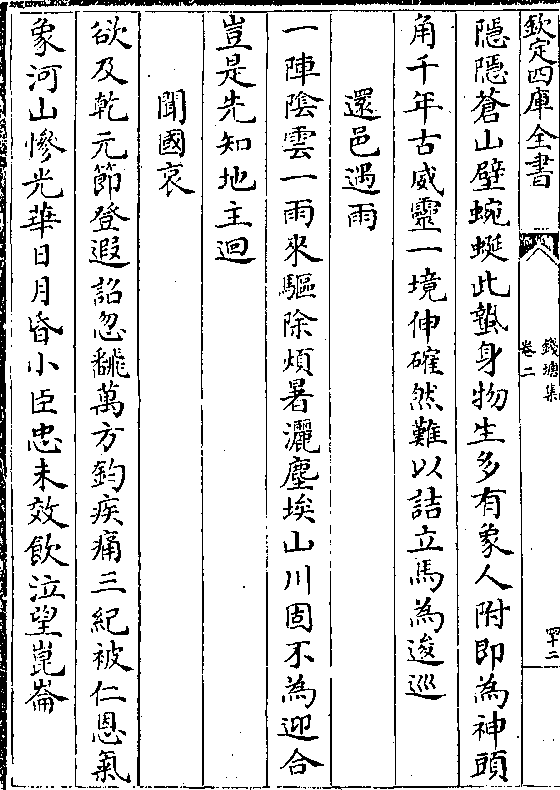 欽定四庫全書
錢塘集
卷二
四十二
隱隱蒼山壁蜿蜒此蟄身物生多有象人附即為神頭
角千年古威靈一境伸確然難以詰立馬為逡巡
還邑遇雨
一陣陰雲一雨來驅除煩暑灑塵埃山川固不為迎合
豈是先知地主迴
聞國哀
欲及乾元節登遐詔忽飜萬方鈞疾痛三紀被仁恩氣
象河山慘光華日月昏小臣忠未效飲泣望崑崙